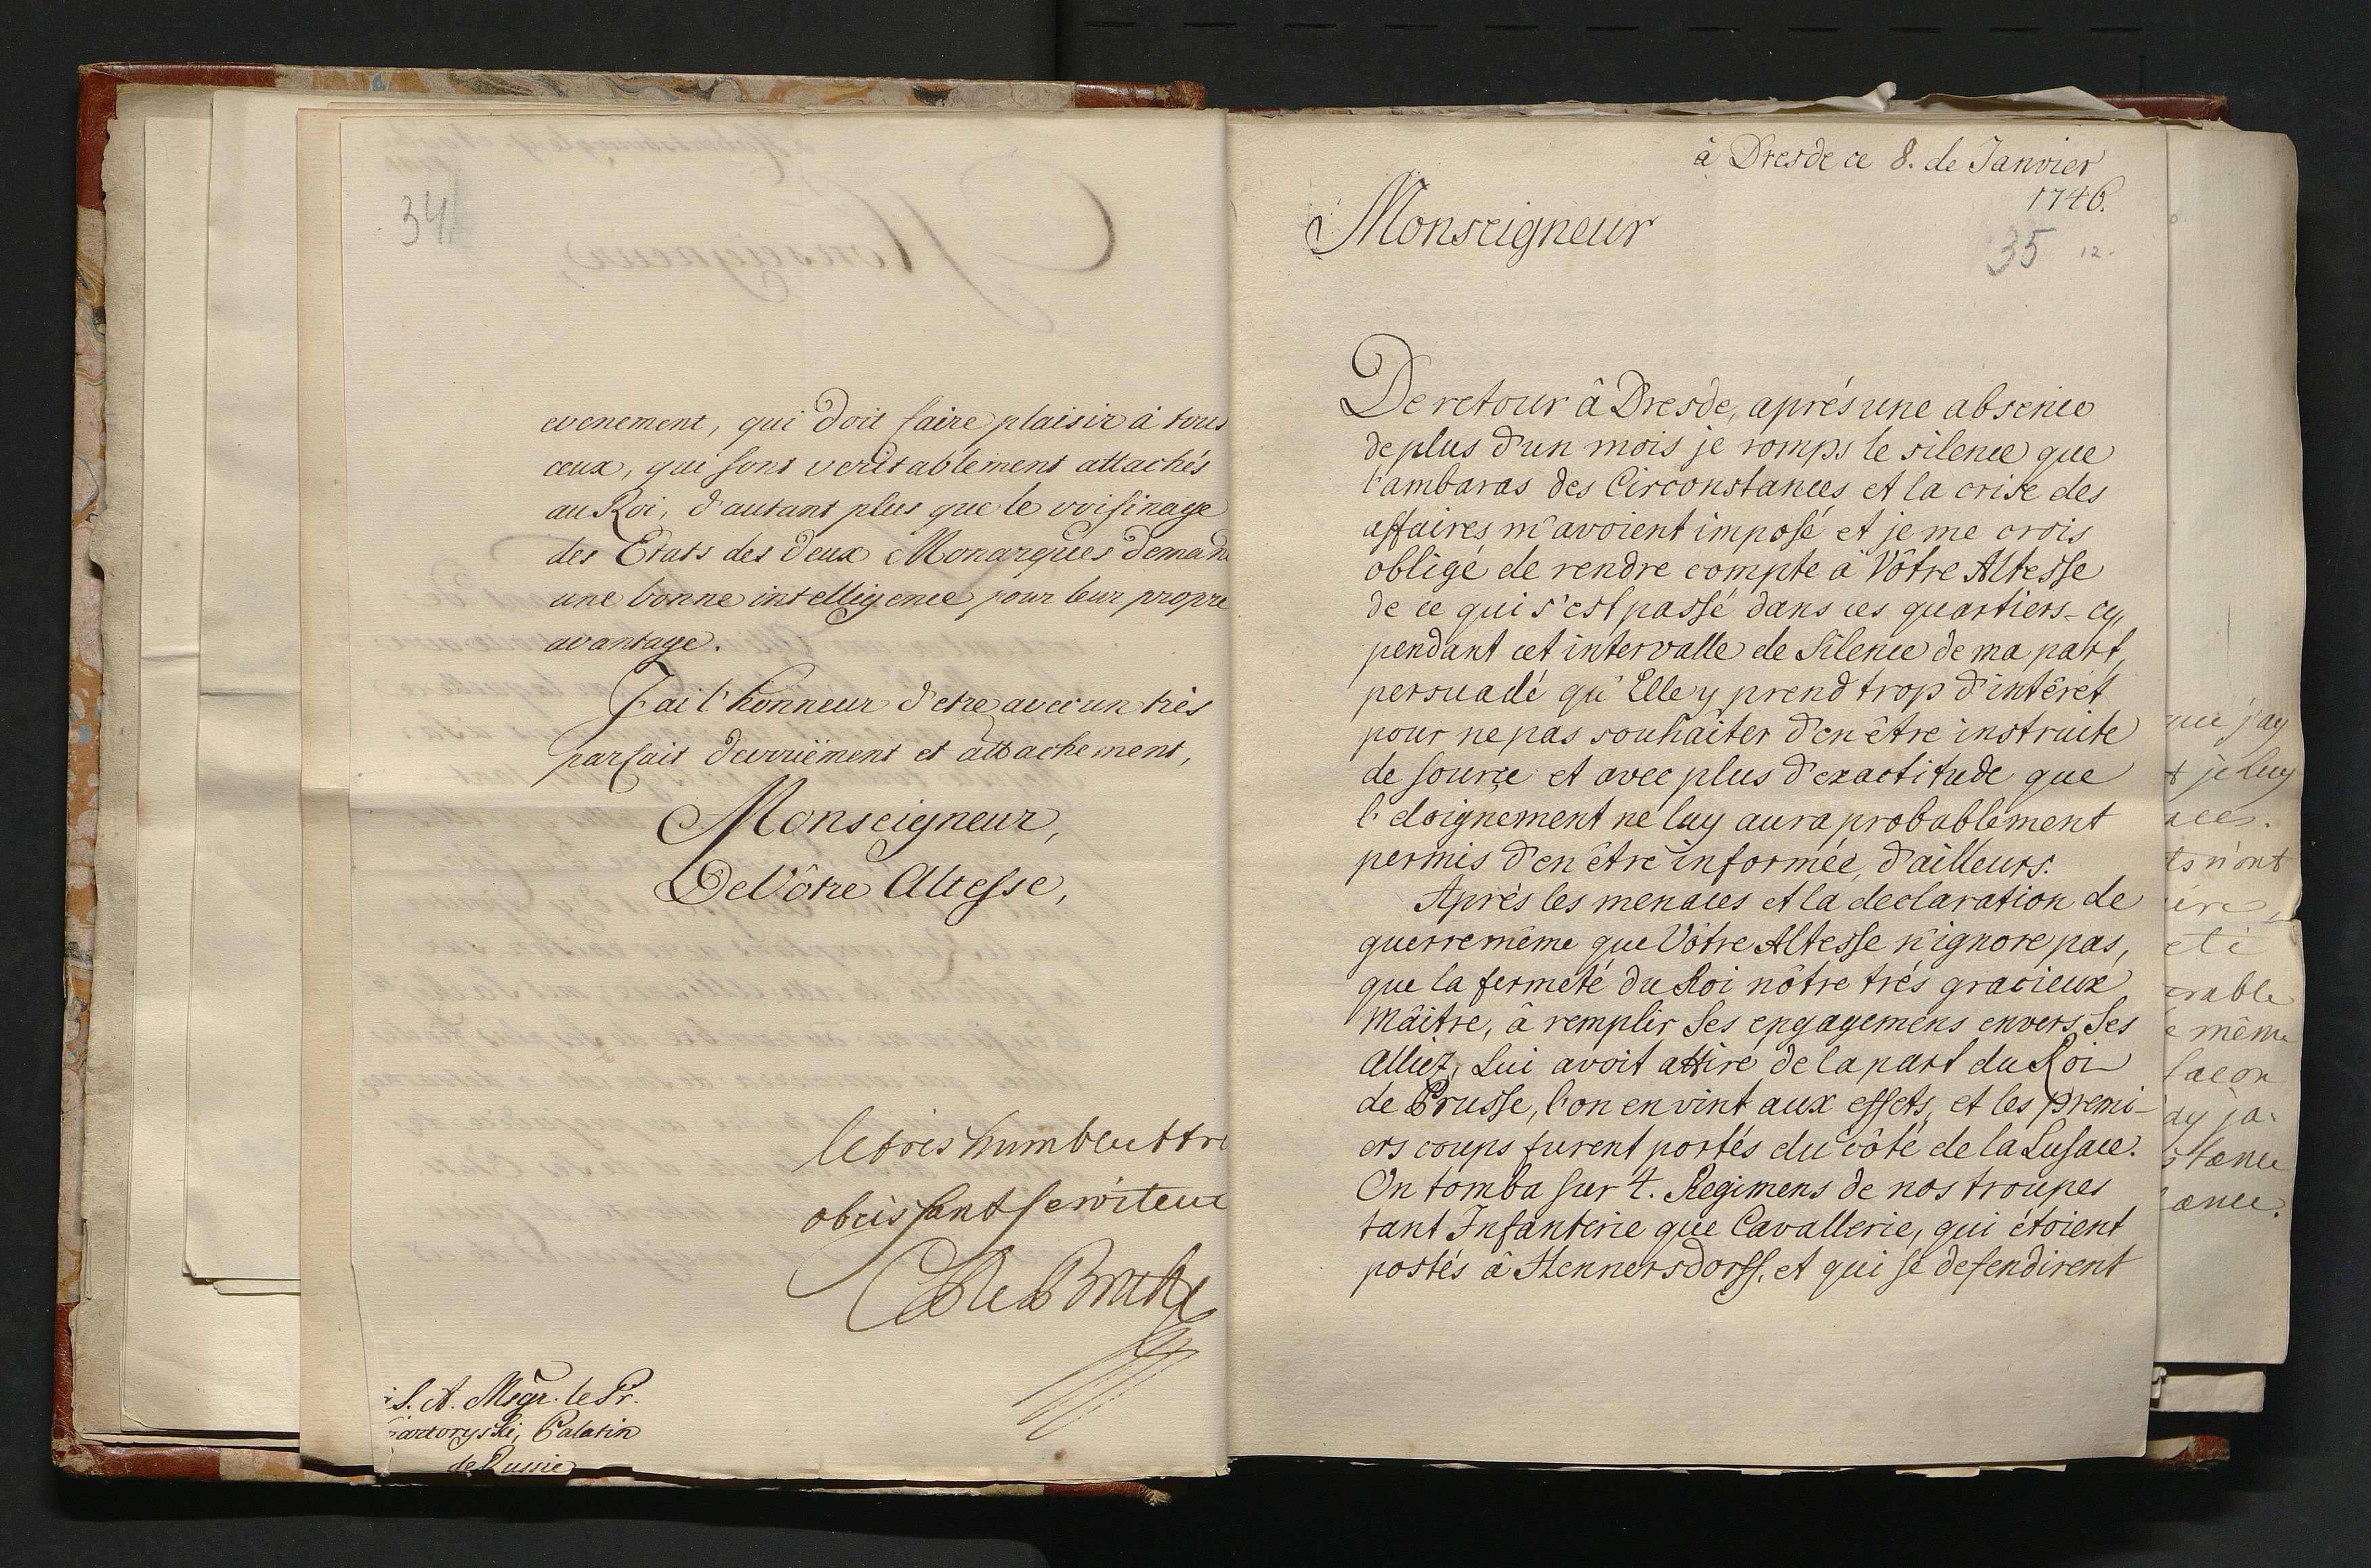 34
evenement, qui doit faire plaisir à tous
ceux, qui sont veritablement attachés
au Roi, d'autant plus que le voisinage
des Etats des deux Monarques demand
une bonne intelligence pour leur propre
avantage.
J'ai l'honneur d'etre avec un trés
parfait devouëment et attachement,
Monseigneur,
De Vôtre Altesse,
le tres humble et tre
obeissant serviteur
C de Bruhl
S. A. Msgr. le Pr.
Czartoryski, Palatin
de Russie
à Dresde ce 8. de Janvier
1746.
Monseigneur
35 12.
De retour â Dresde, aprés une absence
de plus d'un mois je romps le silence que
l'ambaras des Circonstances et la crise des
affaires m'avoient imposé et je me crois
obligé de rendre compte à Vôtre Altesse
de ce qui s'est passé dans ces quartiers-cy,
pendant cet intervalle de silence de ma part,
persuadé qu'Elle y prend trop d'intérét
pour ne pas souhaiter d'en être instruite
de source et avec plus d'exactitude que
l'eloignement ne luy aura probablement
permis d'en être informée, d'ailleurs.
Après les menaces et la declaration de
guerre même que Vôtre Altesse n'ignore pas,
que la fermeté du Roi nôtre trés gracieux
Mâitre, â remplir Ses engagemens envers Ses
Alliez, Lui avoit attiré de la part du Roi
de Prusse, l'on en vint aux effets, et les premi-
ers coups furent portés du côté de la Lusace.
On tomba sur 4. Regimens de nos troupes
tant Infanterie que Cavallerie, qui étoient
postés â Hennersdorff, et qui se defendirent
j'ay
je luy
n'ont
même